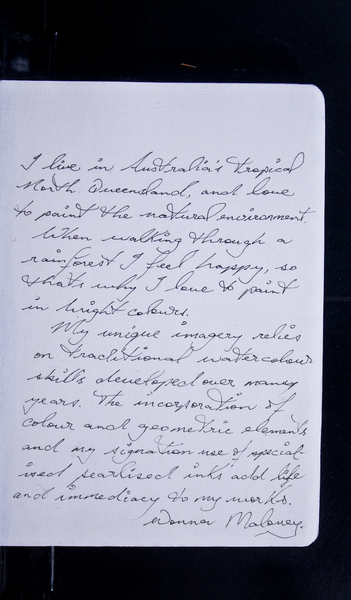 I live in Australia's tropical
North Queensland, and love
to paint the natural environment.
When walking through a
rainforest I feel happy, so
thats why I love to paint
in bright colours.
My unique imagery relies
on traditional watercolour
skills developed over many
years. The incorporation of
colour and geometric elements
and my signation use of special-
ised pearlised inks add life
and immediacy to my works.
Donna Maloney.